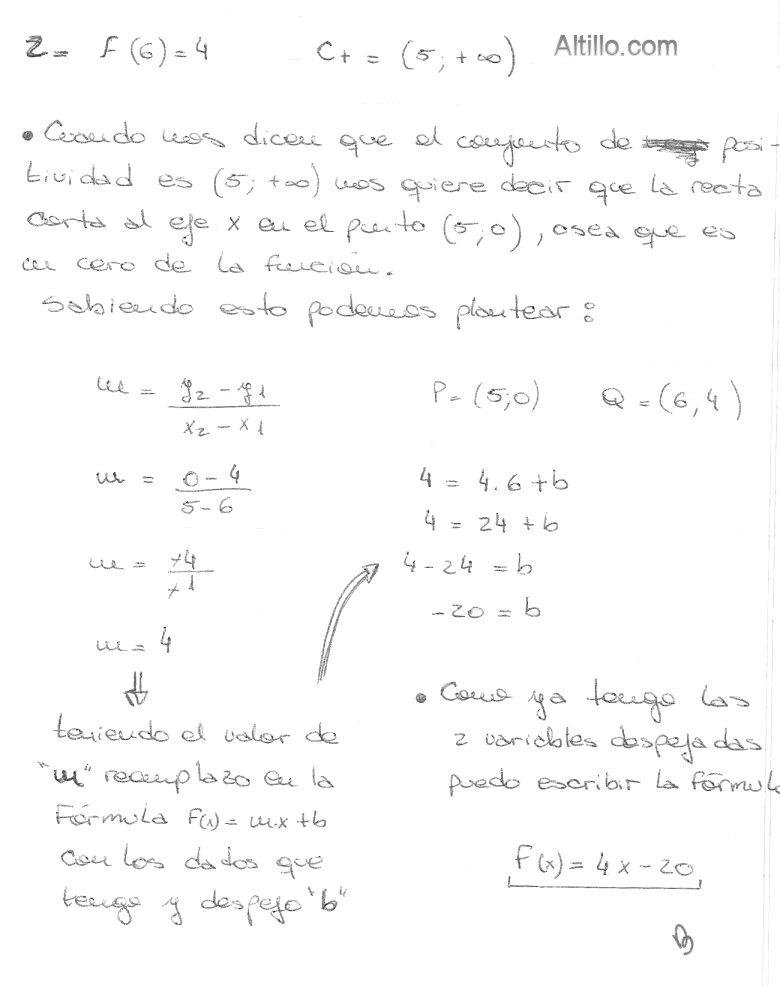 2= F(6)=4 C+ = (5; +∞) Altillo.com
• Cuando nos dicen que el conjunto de posi-
tividad es (5; +∞) nos quiere decir que la recta
corta al eje x en el punto (5;0), osea que es
un cero de la función.
Sabiendo esto podemos plantear:
m = y2 - y1 / x2 - x1
m = 0-4 / 5-6
m = -4 / -1
m = 4
teniendo el valor de
"m" reemplazo en la
Fórmula F(x) = m.x+b
con los datos que
tengo y despejo "b"
P= (5;0) Q = (6,4)
4 = 4.6+b
4 = 24 + b
4-24 = b
-20 = b
• Como ya tengo las
2 variables despejadas
puedo escribir la fórmula
F(x) = 4x-20